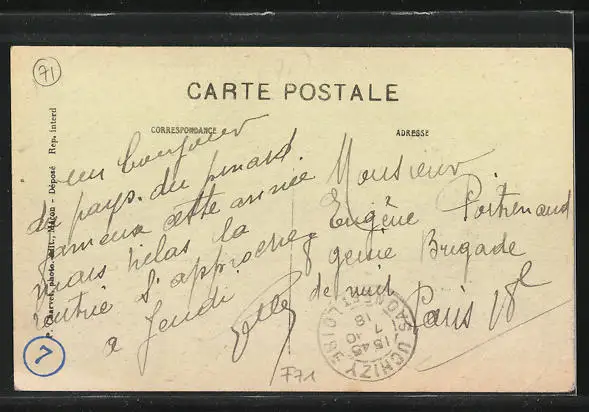 71
CARTE POSTALE
CORRESPONDANCE
ADRESSE
P. Charvet, photo. édit., Mâcon - Déposé Rep. interd
un bonjour
du pays du pinard
fameux cette année
mais hélas la
rentrée s'approche
a Jeudi
Monsieur
Eugène
genie Brigade
de nuit
Paris 18e
UCHIZY
SAONE ET LOIRE
15 45
7
18
F71
7